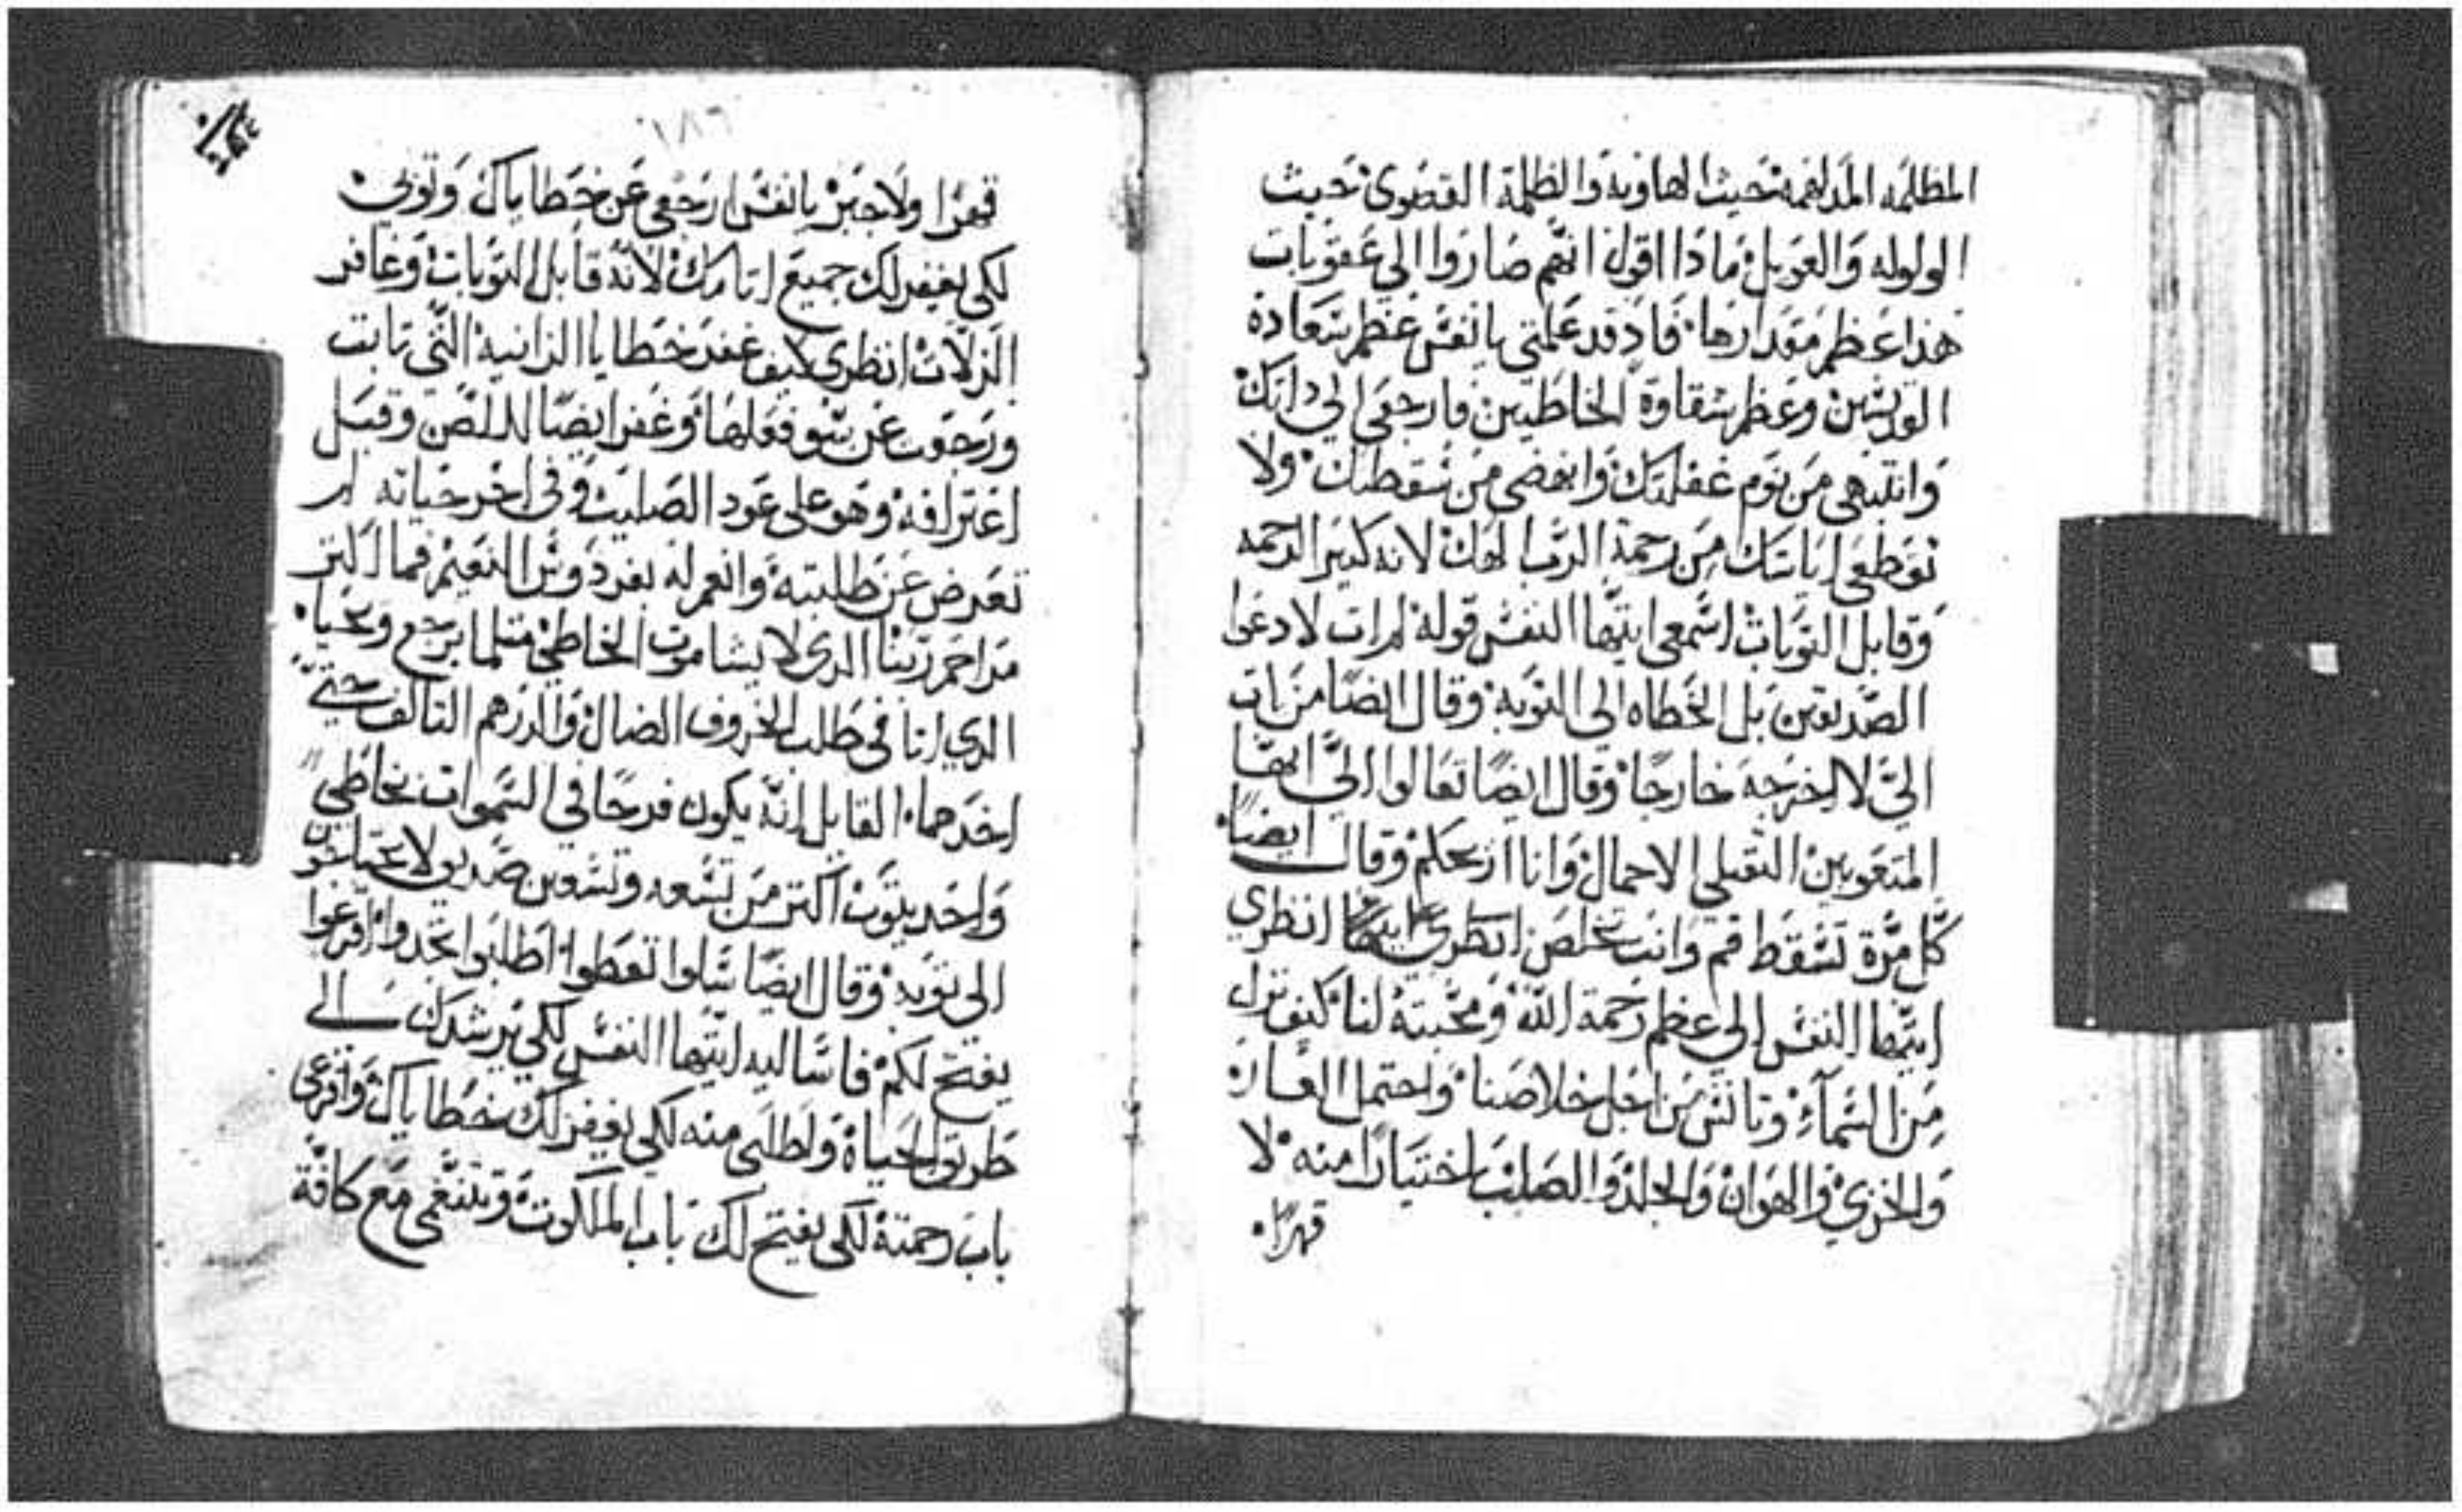 المظلمه المدلهمه حيث الهاويه والظلمة القصوى حيث
الولوله والعويل ماذا اقول انهم صاروا الي عقوبات
هذا عظم مقدارها فاذ قد علمتي يا نفس عظم سعادة
القديسين وعظم شقاوة الخاطيين فارجعي الي ذاتك
وانتبهي من نوم غفلتك وانهضي من سقطتك ولا
تقطعي اياسك من رحمة الرب الهك لانه كتير الرحمه
وقابل التوبات اسمعي ايتها النفس قوله لم ات لادعوا
الصديقين بل الخطاه الي التوبة وقال ايضًا من ات
اليّ لا اخرجه خارجًا وقال ايضًا تعالوا اليّ ايها
المتعوبين التقيلي الاحمال وانا اريحكم وقال ايضًا
كل مرّة تسقط قم وانت تخلص انظري ايضًا انظري
ايتها النفس الي عظم رحمة الله ومحبته لنا كيف نزل
من السمآء وتانس من اجل خلاصنا واحتمل العار
والخزي والهوان والجلد والصليب اختيارًا منه لا
قهرًا
١٨٦
قهرًا ولا جبرًا يا نفس ارجعي عن خطاياك وتوبي
لكي يغفر لك جميع اتامك لانه قابل التوبات وغافر
الزلات انظري كيف غفر خطايا الزانية التي تابت
ورجعت عن سو فعلها وغفر ايضًا للص وقبل
اعترافه وهو على عود الصليب وفي اخر حياته لم
تعرض عن طلبته وانعم له بفردوس النعيم فما اكتر
مراحم ربنا الذي لا يشا موت الخاطي متلما يرجع ويحيا
الذي اتا في طلب الخروف الضال والدرهم التالف حتي
اخدهما القايل انه يكون فرحًا في السموات بخاطي
واحد يتوب اكتر من تسعه وتسعين صديق لا يحتاجون
الى توبه وقال ايضًا سلوا تعطوا اطلبوا تجدوا اقرعوا
يفتح لكم فاساليه ايتها النفس لكي يرشدك الي
طريق الحياة واطلبي منه لكي يغفر لك خطاياك واقرعي
باب رحمته لكي يفتح لك باب الملكوت وتتنعمي مع كافة